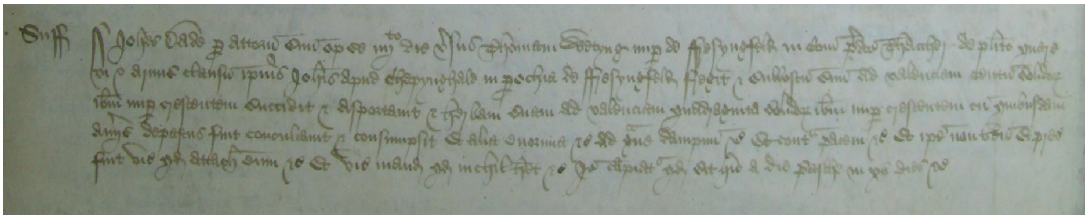 Suff Joh̄es Bade p̄ attorn̄ suū op̄ se iiijto die v̄sus Thomam Wetyng nup̄ de Ffresyngfeld in Com̄ p̄d̄co Thaccher de pl̄ito quare
vi & armis clausū ip̄ius Joh̄is apud Chepynghale in p̄ochia de Ffresyngfeld fregit & subboscū suū ad valenciam centū solidoꝝ
ib̄m nup̄ crescentem succidit & asportavit & herbam suam ad valenciam quadraginta solidoꝝ ib̄m nup̄ crescentem cū quibusdam
aver̄ depascens fuit conculcavit & consumpsit Et alia enormia &c ad g̃ve dampnū &c Et cont̃ pacem &c Et ip̄e non ven̄ Et p̄cep̄
fuit vic̄ qd̄ attach̄ eum &c Et vic̄ mand̄ qd̄ nichil h̄et &c Jō capiat̃ qd̄ sit hic a die Pasche in xv dies &c